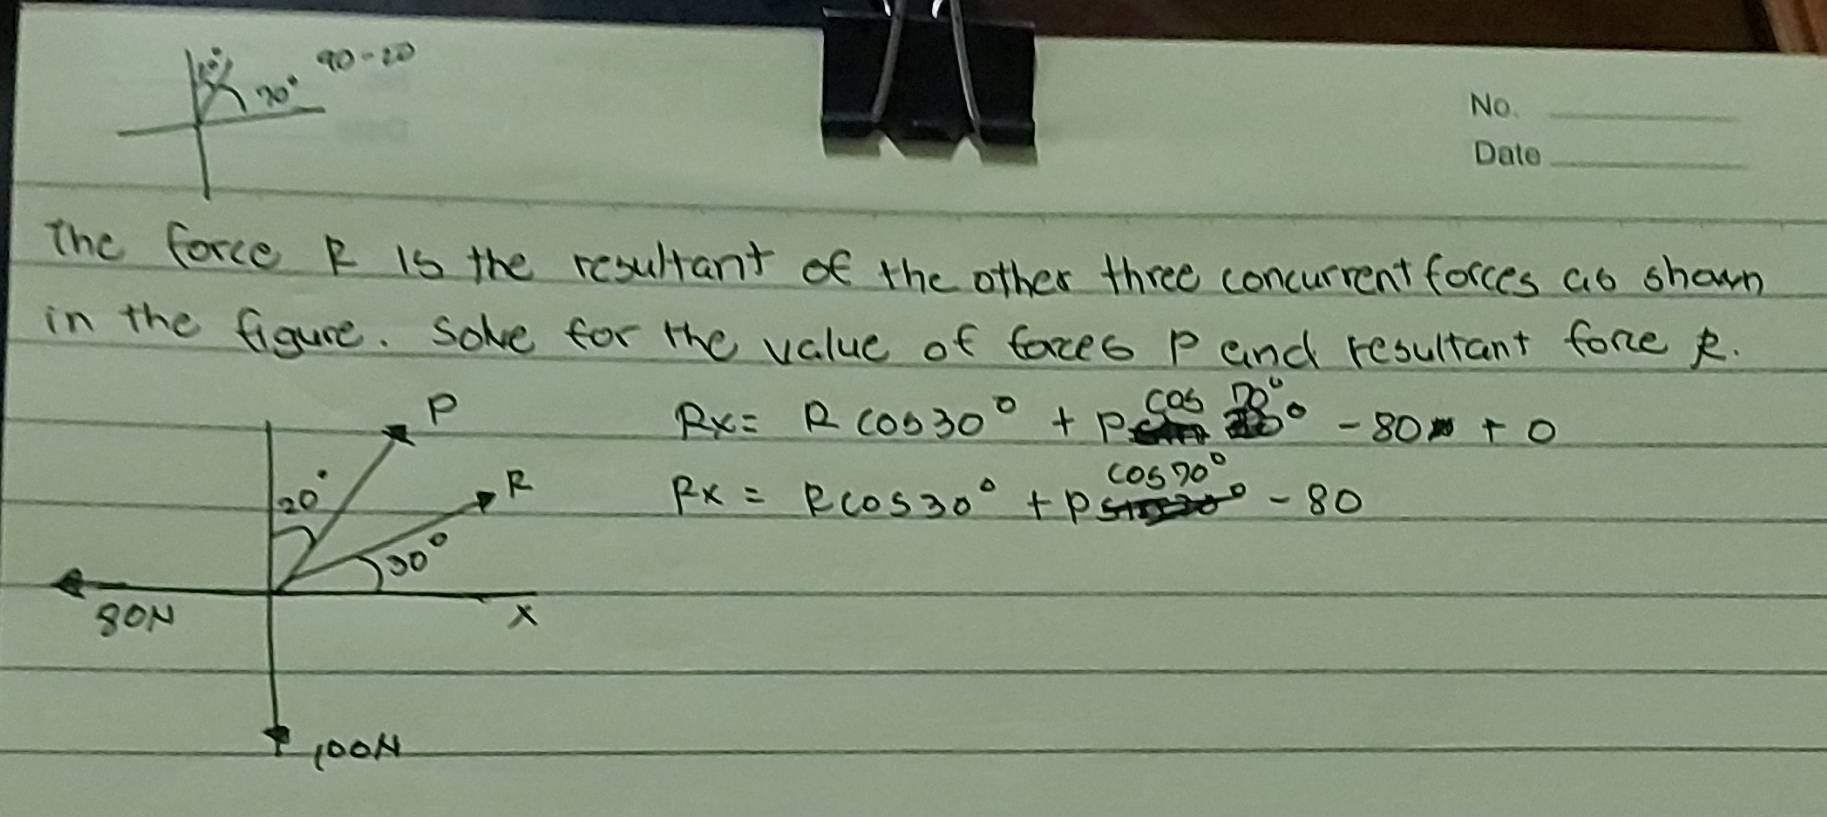 70° 90-20
No.
Date
The force R is the resultant of the other three concurrent forces as shown
in the figure. Solve for the value of forces P and resultant force R.
P
R
20°
30°
80N
X
100N
Rx = R cos30° + P cos 70° - 80 + 0
Rx = R cos30° + P cos70° - 80